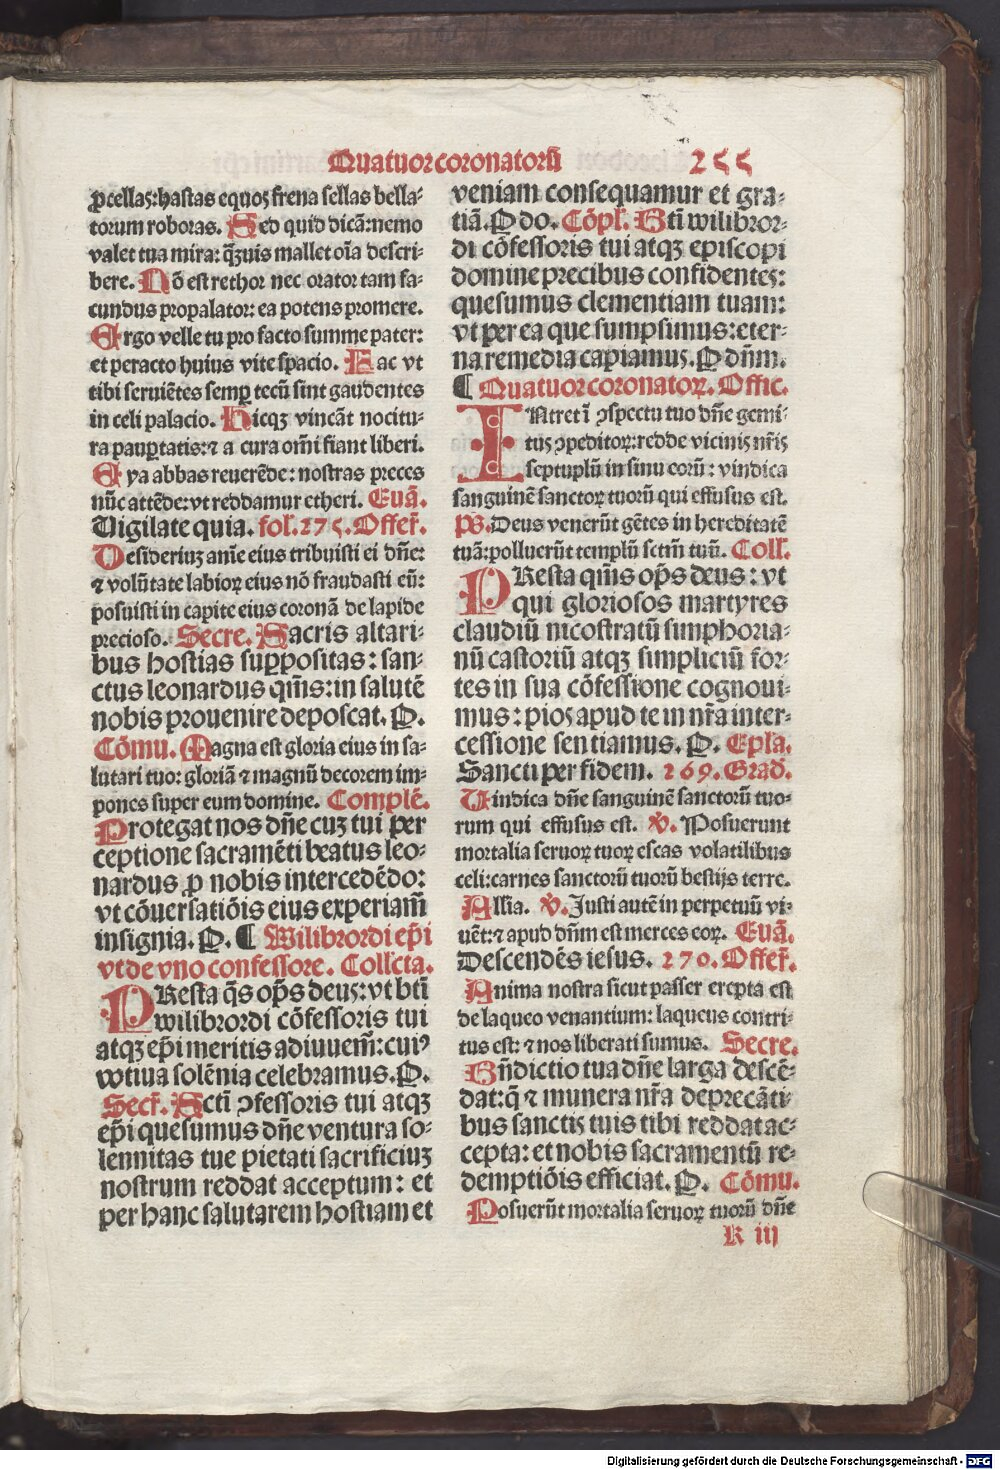 Quatuor coronatorū 255
ꝓcellas: hastas equos frena sellas bella-
torum roboras. Sed quid dicā: nemo
valet tua mira: q̄ꝫuis mallet oīa descri-
bere. Nō est rethor nec orator tam fa-
cundus propalator: ea potens promere.
Ergo velle tu pro facto summe pater:
et peracto huius vite spacio. Fac vt
tibi seruiētes semꝑ tecū sint gaudentes
in celi palacio. Hicqꝫ vincāt nocitu-
ra pauꝑtatis: ⁊ a cura om̄i fiant liberi.
Eya abbas reuerēde: nostras preces
nūc attēde: vt reddamur etheri. Euā.
Vigilate quia. fol. 275. Offer̄.
Desideriuꝫ anīe eius tribuisti ei dn̄e:
⁊ volūtate labioꝝ eius nō fraudasti eū:
posuisti in capite eius coronā de lapide
precioso. Secre. Sacris altari-
bus hostias suꝑpositas: san-
ctus leonardus qm̄s: in salutē
nobis prouenire deposcat. P.
Cōmu. Magna est gloria eius in sa-
lutari tuo: gloriā ⁊ magnū decorem im-
pones super eum domine. Complē.
Protegat nos dn̄e cuꝫ tui per
ceptione sacramēti beatus leo-
nardus ꝓ nobis intercedēdo:
vt cōuersatiōis eius experiam̄
insignia. P. ¶ Wilibrordi ep̄i
vt de vno confessore. Coll'cta.
PResta q̄s op̄s deus: vt btī
wilibrordi cōfessoris tui
atqꝫ ep̄i meritis adiuuem̄: cuiꝰ
votiua solēnia celebramus. P.
Secr̄. Sctī ꝯfessoris tui atqꝫ
ep̄i quesumus dn̄e ventura so-
lennitas tue pietati sacrificiuꝫ
nostrum reddat acceptum: et
per hanc salutarem hostiam et
veniam consequamur et gra-
tiā. P do. Cōpl'. Btī wilibror-
di cōfessoris tui atqꝫ episcopi
domine precibus confidentes:
quesumus clementiam tuam:
vt per ea que sumpsimus: eter-
na remedia capiamus. P dn̄m.
¶ Quatuor coronatoꝝ. Offic.
INtret ī ꝯspectu tuo dn̄e gemi-
tus ꝯpeditoꝝ: redde vicinis nr̄is
septuplū in sinu eorū: vindica
sanguinē sanctoꝝ tuorū qui effusus est.
Ps. Deus venerūt gētes in hereditatē
tuā: polluerūt templū sctm̄ tuū. Coll'.
PResta qm̄s op̄s deus: vt
qui gloriosos martyres
claudiū nicostratū simphoria-
nū castoriū atqꝫ simpliciū for-
tes in sua cōfessione cognoui-
mus: pios apud te in nr̄a inter-
cessione sentiamus. P. Epl'a.
Sancti per fidem. 269. Grad.
Vindica dn̄e sanguinē sanctorū tuo-
rum qui effusus est. ℣. Posuerunt
mortalia seruoꝝ tuoꝝ escas volatilibus
celi: carnes sanctorū tuorū bestijs terre.
All'ia. ℣. Justi autē in perpetuū vi-
uēt: ⁊ apud dn̄m est merces eoꝝ. Euā.
Descendēs iesus. 270. Offer̄.
Anima nostra sicut passer erepta est
de laqueo venantium: laqueus contri-
tus est: ⁊ nos liberati sumus. Secre.
Bn̄dictio tua dn̄e larga descē-
dat: q̄ ⁊ munera nr̄a deprecāti-
bus sanctis tuis tibi reddat ac-
cepta: et nobis sacramentū re-
demptiōis efficiat. P. Cōmu.
Posuerūt mortalia seruoꝝ tuorū dn̄e
K iij
Digitalisierung gefördert durch die Deutsche Forschungsgemeinschaft - DFG